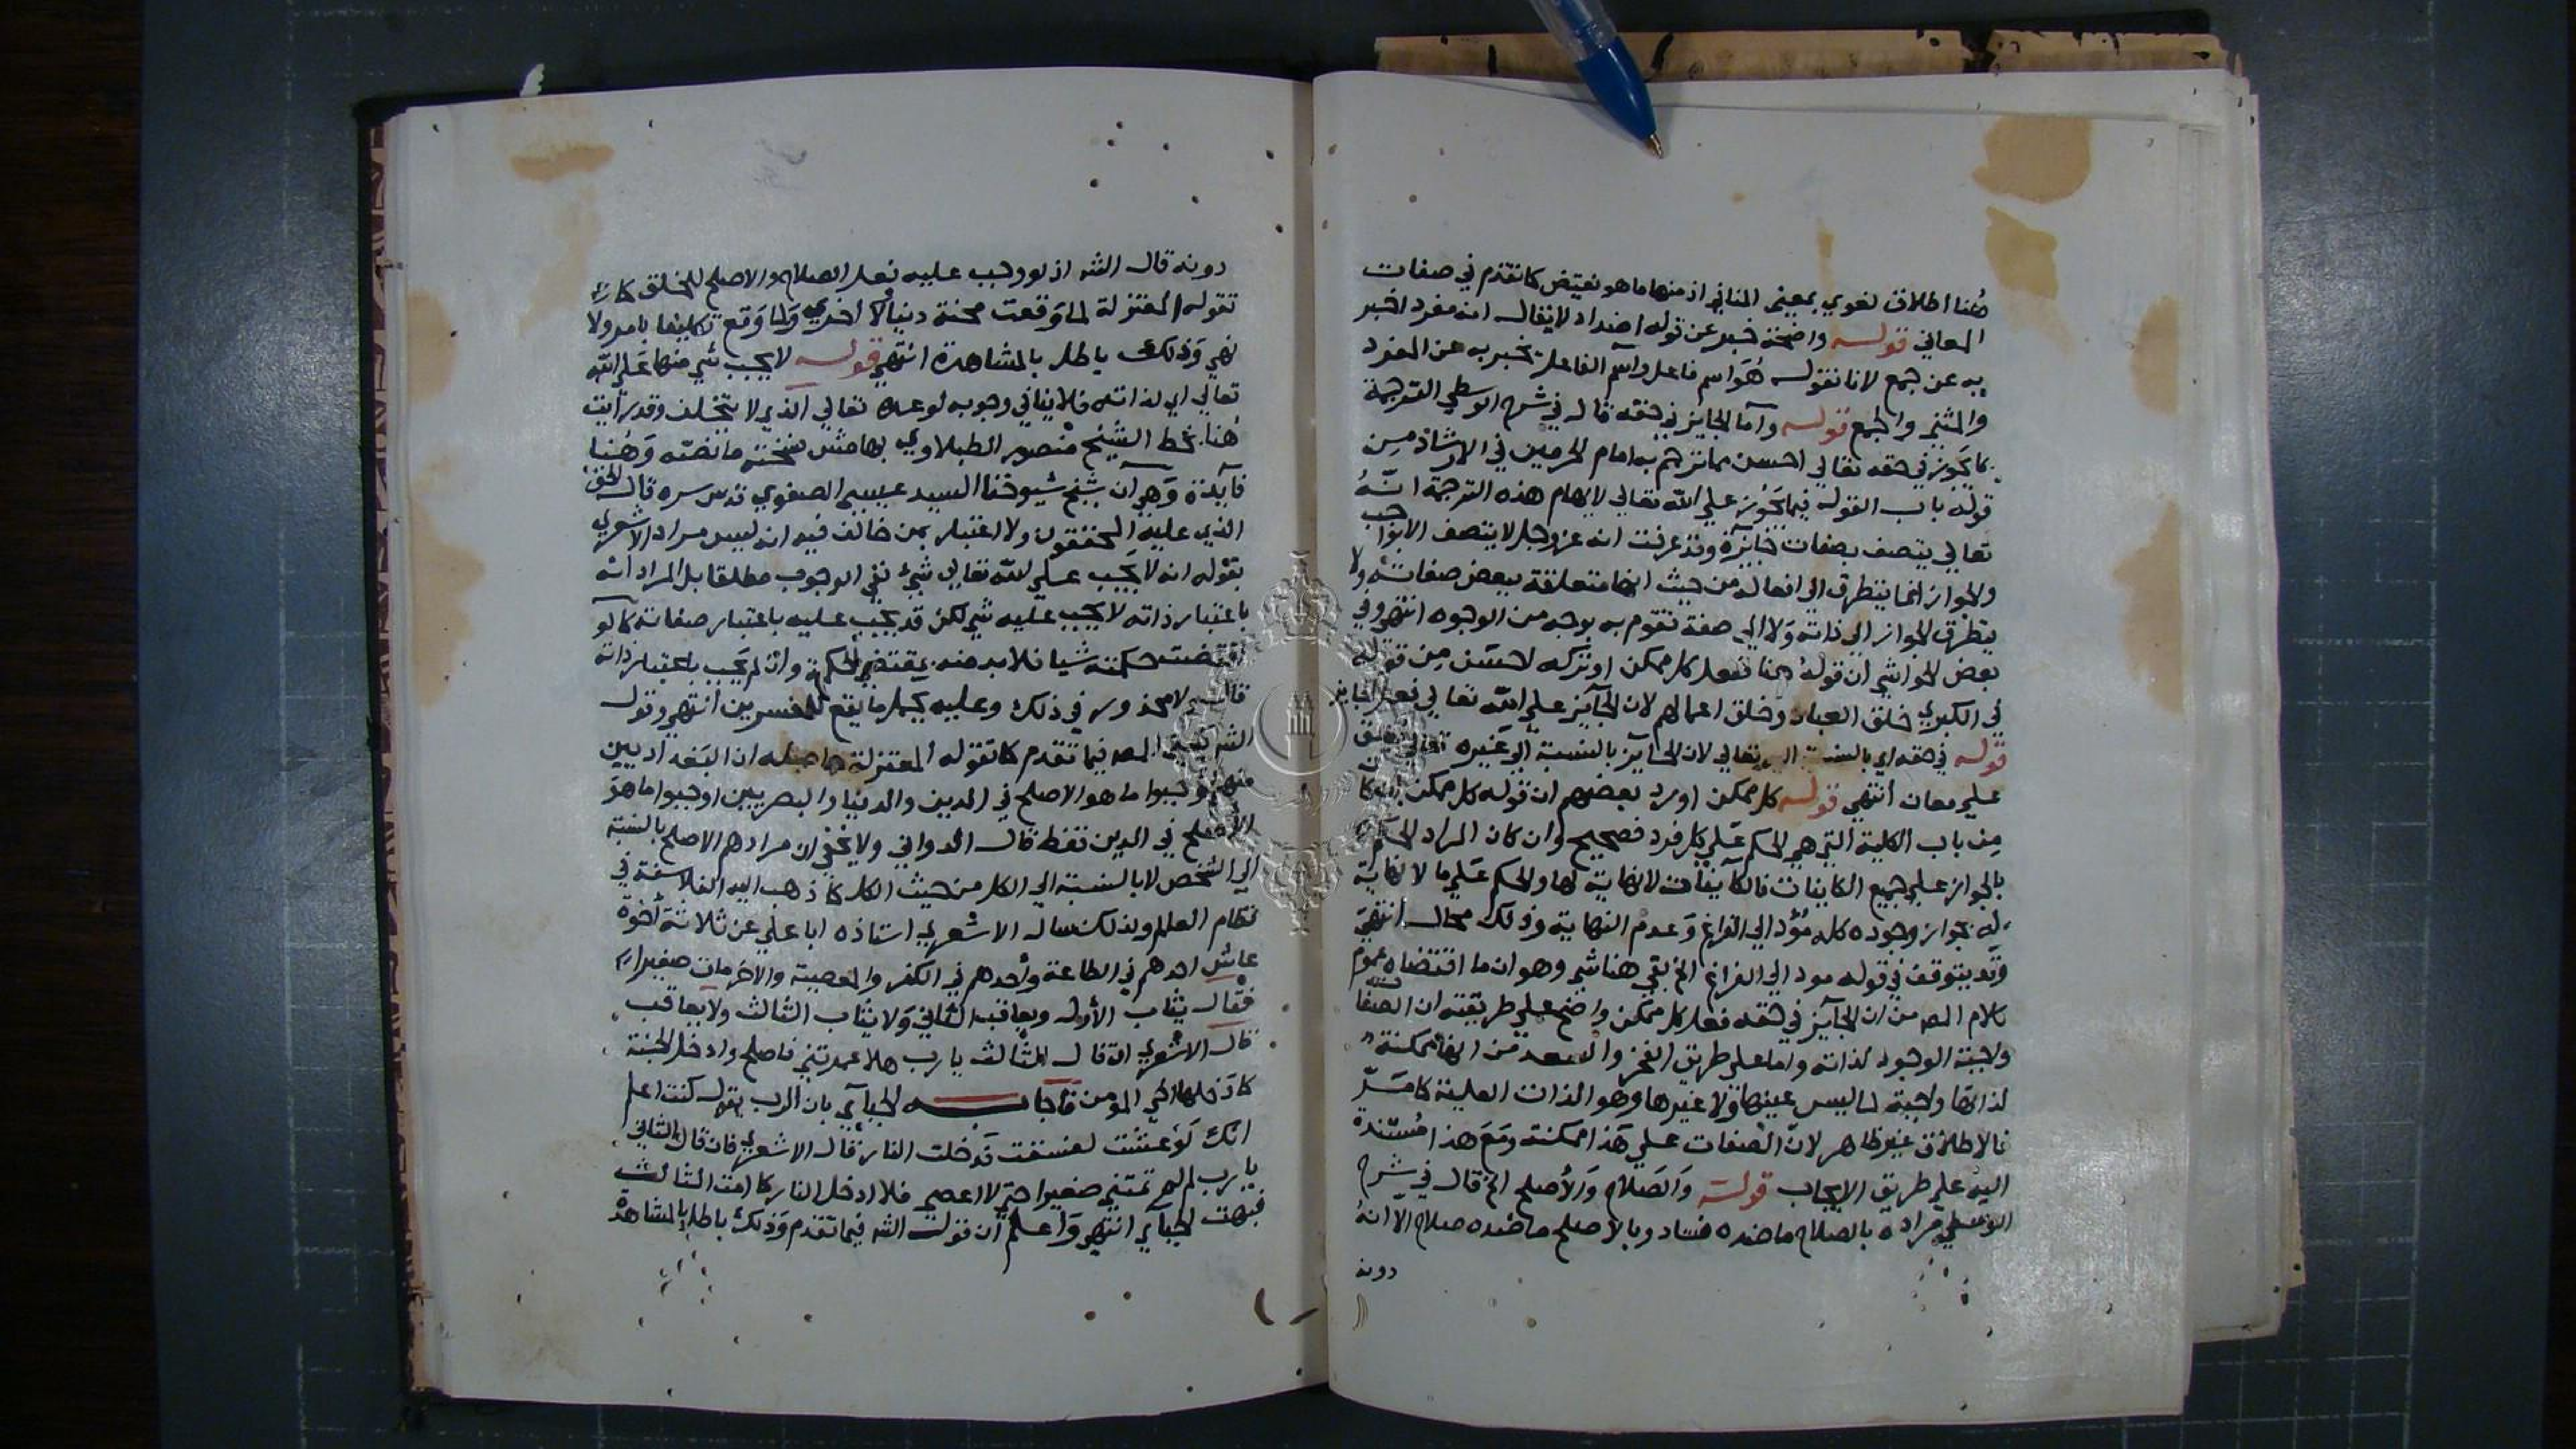 هنا اطلاق لغوي بمعنى المنافي اذ منها ما هو نقيض كما تقدم في صفات
المعاني قوله واضحة خبر عن قوله اضداد لا يقال انه مفرد اخبر
به عن جمع لانا نقول هو اسم فاعل واسم الفاعل يخبر به عن المفرد
والمثنى والجمع قوله واما الجايز في حقه قال في شرح الوسطى الترجمة
بما يجوز في حقه تعالى احسن مما ترجم به امام الحرمين في الارشاد من
قوله باب القول فيما يجوز على الله تعالى لايهام هذه الترجمة انه
تعالى يتصف بصفات جايزة وقد عرفت انه عز وجل لا يتصف الا بواجب
والجواز انما يتطرق الى افعاله من حيث انها متعلقة ببعض صفاته ولا
يتطرق الجواز الى ذاته ولا الى صفة تقوم به بوجه من الوجوه انتهى وفي
بعض الحواشي ان قوله هنا فعل كل ممكن او تركه احسن من قوله
في الكبرى خلق العباد وخلق اعمالهم لان الجايز على الله تعالى فعل الجايز
قوله في حقه اي بالنسبة اليه تعالى لان الجايز بالنسبة الى غيره تعالى يطلق
على معان انتهى قوله كل ممكن اورد بعضهم ان قوله كل ممكن ان كان
من باب الكلية التي هي الحكم على كل فرد فصحيح وان كان المراد الحكم
بالجواز على جميع الكاينات فالكاينات لا نهاية لها والحكم على ما لا نهاية
له بجواز وجوده كله مؤد الى الفراغ وعدم النهاية وذلك محال انتهى
وقد يتوقف في قوله مود الى الفراغ الخ بقي هنا شي وهو ان ما اقتضاه عموم
كلام المصـ من ان الجايز في حقه فعل كل ممكن واضح على طريقته ان الصفات
واجبة الوجود لذاته واما على طريق الفخر والسعد من انها ممكنة
لذاتها واجبة لما ليس عينها ولا غيرها وهو الذات العلية كما مر
فالاطلاق غير ظاهر لان الصفات على هذا ممكنة ومع هذا مستندة
اليه على طريق الايجاب قوله والصلاح والاصلح الخ قال في شرح
الوسطى مراده بالصلاح ما ضده فساد وبالاصلح ما ضده صلاح الا انه
دونه
دونه قال الشـ اذ لو وجب عليه فعل الصلاح والاصلح للخلق كما
تقوله المعتزلة لما وقعت محنة دنيا ولا اخرى ولما وقع تكليف بامر ولا
نهي وذلك باطل بالمشاهدة انتهى قوله لا يجب شي منها على الله
تعالى اي لذاته فلا ينافي وجوبه لوعده تعالى الذي لا يتخلف وقد رايت
هنا بخط الشيخ منصور الطبلاوي بهامش نسخته ما نصه وهنا
فايدة وهي ان شيخ شيوخنا السيد عيسى الصفوي قدس سره قال الحق
الذي عليه المحققون ولا اعتبار بمن خالف فيه انه ليس مراد الاشعري
بقوله انه لا يجب على الله تعالى شيئ نفي الوجوب مطلقا بل المراد انه
باعتبار ذاته لا يجب عليه شي لكن قد يجب عليه باعتبار صفاته كما لو
اقتضت حكمته شيا فلا بد منه بمقتضى الحكمة وان لم يجب باعتبار ذاته
قال ولا محذور في ذلك وعليه يحمل ما يقع للمفسرين انتهى وقول
الشـ المصـ فيما تقدم كما تقوله المعتزلة حاصله ان البغداديين
منهم اوجبوا ما هو الاصلح في الدين والدنيا والبصريين اوجبوا ما هو
الاصلح في الدين فقط قال الدواني ولا يخفى ان مرادهم الاصلح بالنسبة
الى الشخص لا بالنسبة الى الكل من حيث الكل كما ذهب اليه الفلاسفة في
نظام العالم ولذلك سال الاشعري استاذه ابا علي عن ثلاثة اخوة
عاش احدهم في الطاعة واحدهم في الكفر والمعصية والاخر مات صغيرا
فقال يثاب الاول ويعاقب الثاني ولا يثاب الثالث ولا يعاقب
قال الاشعري ان قال الثالث يا رب هلا عمرتني فاصلح وادخل الجنة
كما دخلها اخي المومن فاجابـــه الجبائي بان الرب يقول كنت اعلم
انك لو عشت لفسقت فدخلت النار قال الاشعري فان قال الثاني
يا رب لم لم تمتني صغيرا حتى لا اعصي فلا ادخل النار كما امت الثالث
فبهت الجبائي انتهى واعلم ان قول الشـ فيما تقدم وذلك باطل بالمشاهدة